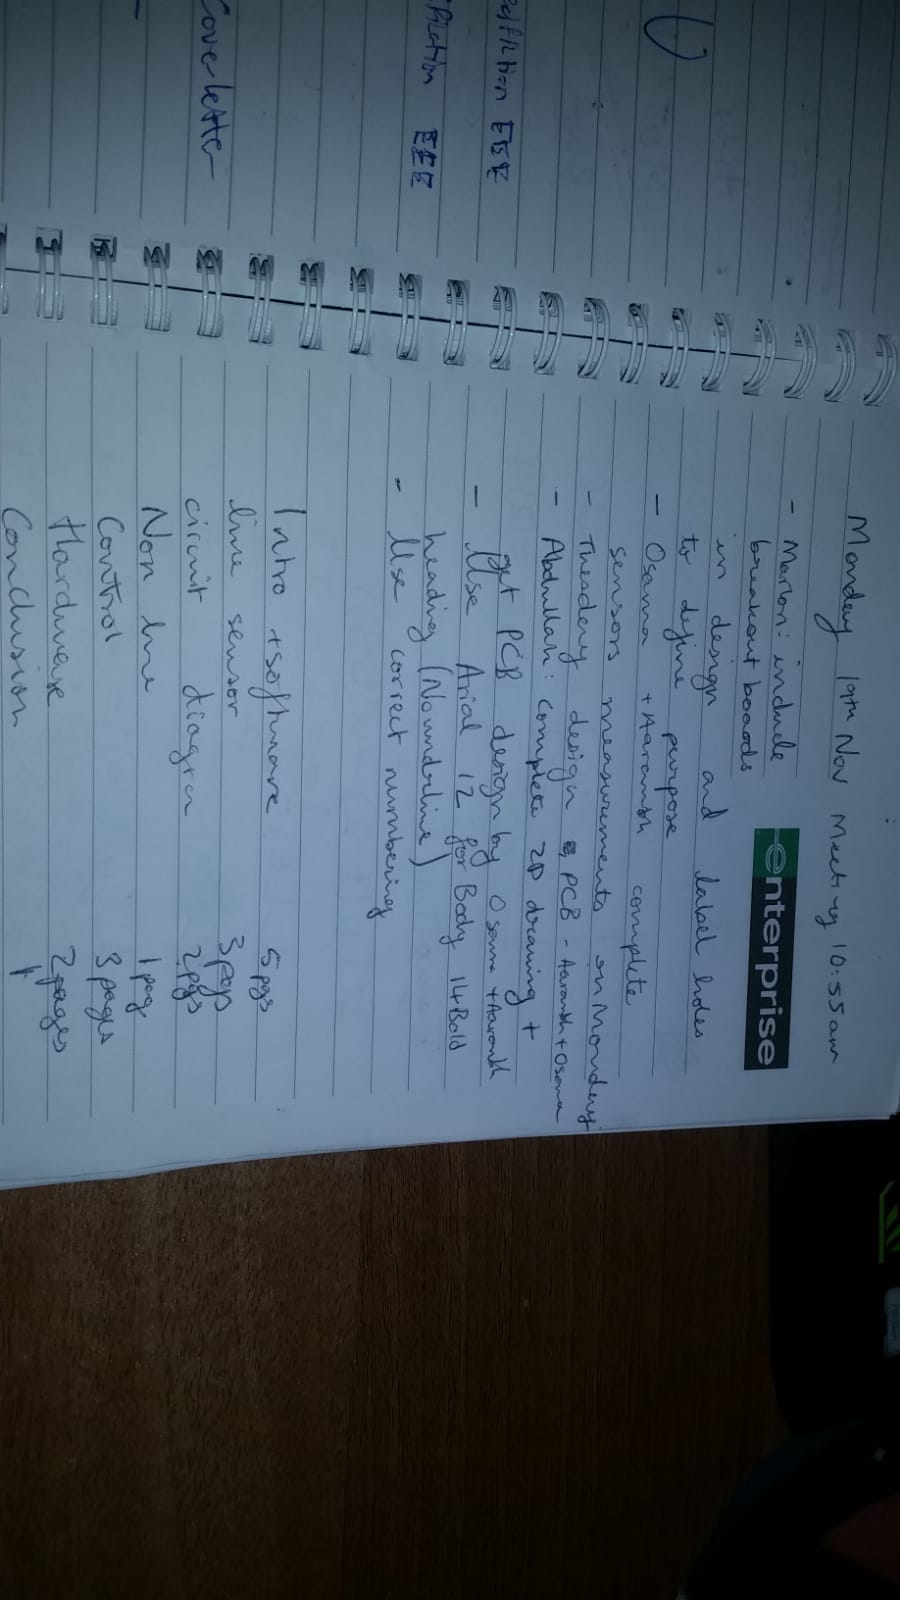 Monday 19th Nov Meeting 10:55am
enterprise
- Marlon: include
breakout boards
in design and label holes
to define purpose
- Osama + Aaransh complete
sensors measurements on Monday
- Tuesday design PCB - Aaransh + Osama
- Abdullah: complete 2D drawing +
get PCB design by Osama + Aaransh
- Use Arial 12 for Body 14 Bold
heading (No underline)
- Use correct numbering
Intro + software 5 pgs
line sensor 3 pgs
circuit diagram 2 pgs
Non line 1 pag
Control 3 pages
Hardware 2 pages
Conclusion 1
EEE
EEE
Cover letter